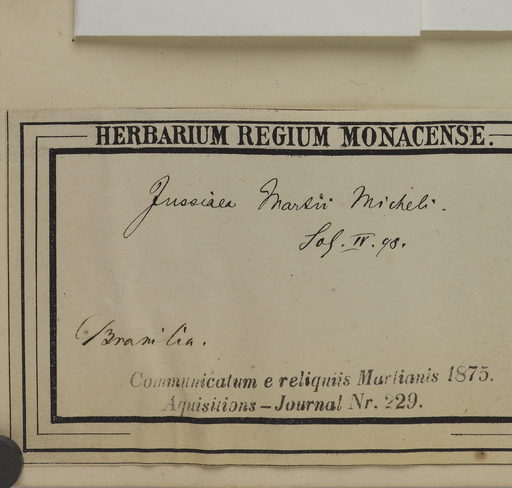 HERBARIUM REGIUM MONACENSE.
Jussiaea Martii Micheli.
Sol. IV. 98.
Brasilia.
Communicatum e reliquiis Martianis 1875.
Aquisitions-Journal Nr. 229.